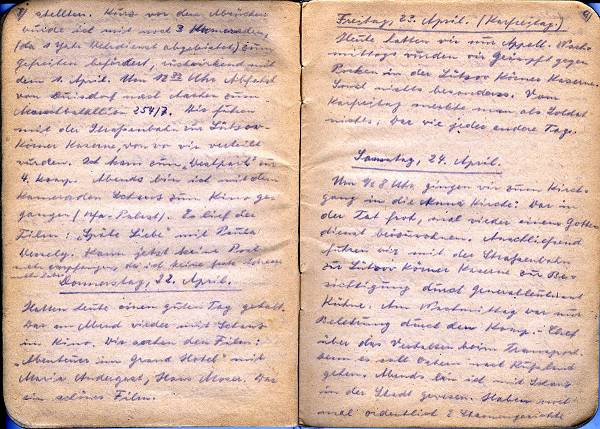 stellten. Kurz vor dem Abrücken
wurde ich mit noch 3 Kameraden,
(da 1 Jahr Wehrdienst abgeleistet) zum
Gefreiten befördert, rückwirkend mit
dem 1. April. Um 12 Uhr Abfahrt
von Duisdorf nach Aachen zum
Marschbataillon 254/7. Wir fuhren
mit der Straßenbahn zur Lützow-
Körner Kaserne, von wo wir verteilt
wurden. Ich kam zum
4. Komp. Abends bin ich mit dem
Kameraden zum Kino ge-
gangen. Es lief der
Film: „Späte Liebe" mit Paula
Wessely. Kann jetzt keine Post
mehr empfangen, da ich keine feste Adresse
Donnerstag, 22. April.
Hatten heute einen guten Tag gehabt.
War am Abend wieder mit
im Kino. Wir sahen den Film:
„Abenteuer im Grand Hotel" mit
Maria Andergast, Hans Moser. War
ein schönes Film.
Freitag, 23. April. (Karfreitag.)
Heute hatten wir nur Appell. Nach-
mittags wurden wir geimpft gegen
Pocken in der Lützow Körner Kaserne.
Sonst nichts besonderes. Vom
Karfreitag merkte man als Soldat
nichts; War wie jeder andere Tag.
Samstag, 24. April.
Um 1/2 8 Uhr gingen wir zum Kirch-
gang in die Anna Kirche. War in
der Tat froh, mal wieder einem Gottes
dienst beizuwohnen. Anschließend
fuhren wir mit der Straßenbahn
zur Lützow Körner Kaserne zur Be-
sichtigung durch Generalleutnant
Kühne. Am Nachmittag war nur
Belehrung durch den Komp.-Chef
über das Verhalten beim Transport.
denn es soll Ostern nach Rußland
gehen. Abends bin ich mit
in der Stadt gewesen. Haben noch
mal ordentlich 2 Stammgerichte